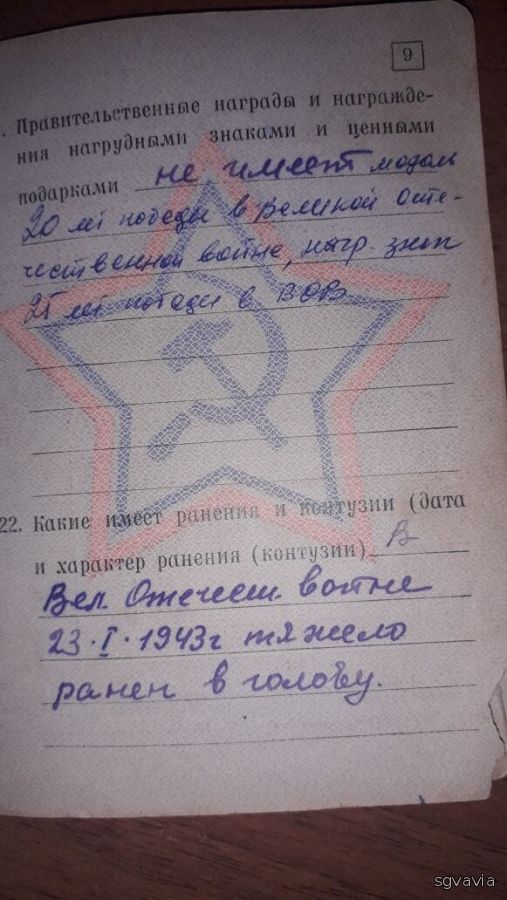 9
. Правительственные награды и награжде-
ния нагрудными знаками и ценными
подарками не имеет медаль
20 лет победы в Великой Оте-
чественной войне, нагр. знак
25 лет победы в ВОВ
22. Какие имеет ранения и контузии (дата
и характер ранения (контузии) В
Вел. Отечеств. войне
23.I.1943г тяжело
ранен в голову.
sgvavia